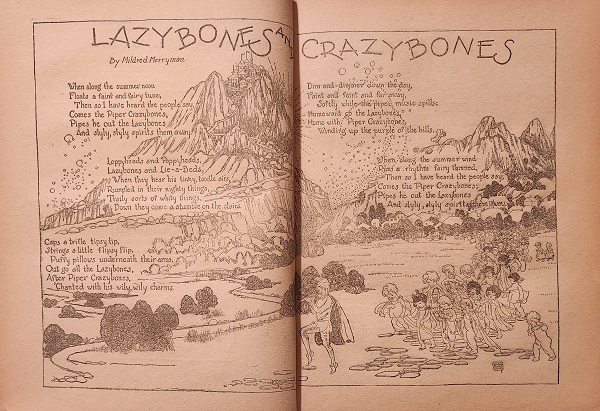 LAZYBONES AND CRAZYBONES
By Mildred Merryman
When along the summer noon
Floats a faint and fairy tune,
Then so I have heard the people say,
Comes the Piper Crazybones,
Pipes he out the Lazybones
And slyly, slyly spirits them away.
Loppyheads and Poppyheads,
Lazybones and Lie-a-Beds,
When they hear his tinky, tootle airs,
Rumpled in their nighty things,
Traily sorts of whity things,
Down they come a stumble on the stairs.
Caps a trifle tipsy tip,
Strings a little flipsy flip,
Puffy pillows underneath their arms,
Out go all the Lazybones,
After Piper Crazybones,
Chanted with his wily, wily charms.
Dim and dimmer down the day,
Faint and faint and far away,
Softly while the piper's music spills;
Homeward go the Lazybones,
Home with Piper Crazybones,
Winding up the purple of the hills.
When along the summer wind
Runs a rhythm fairy thinned,
Then so I have heard the people say,
Comes the Piper Crazybones,
Pipes he out the Lazybones
And slyly, slyly spirits them away.